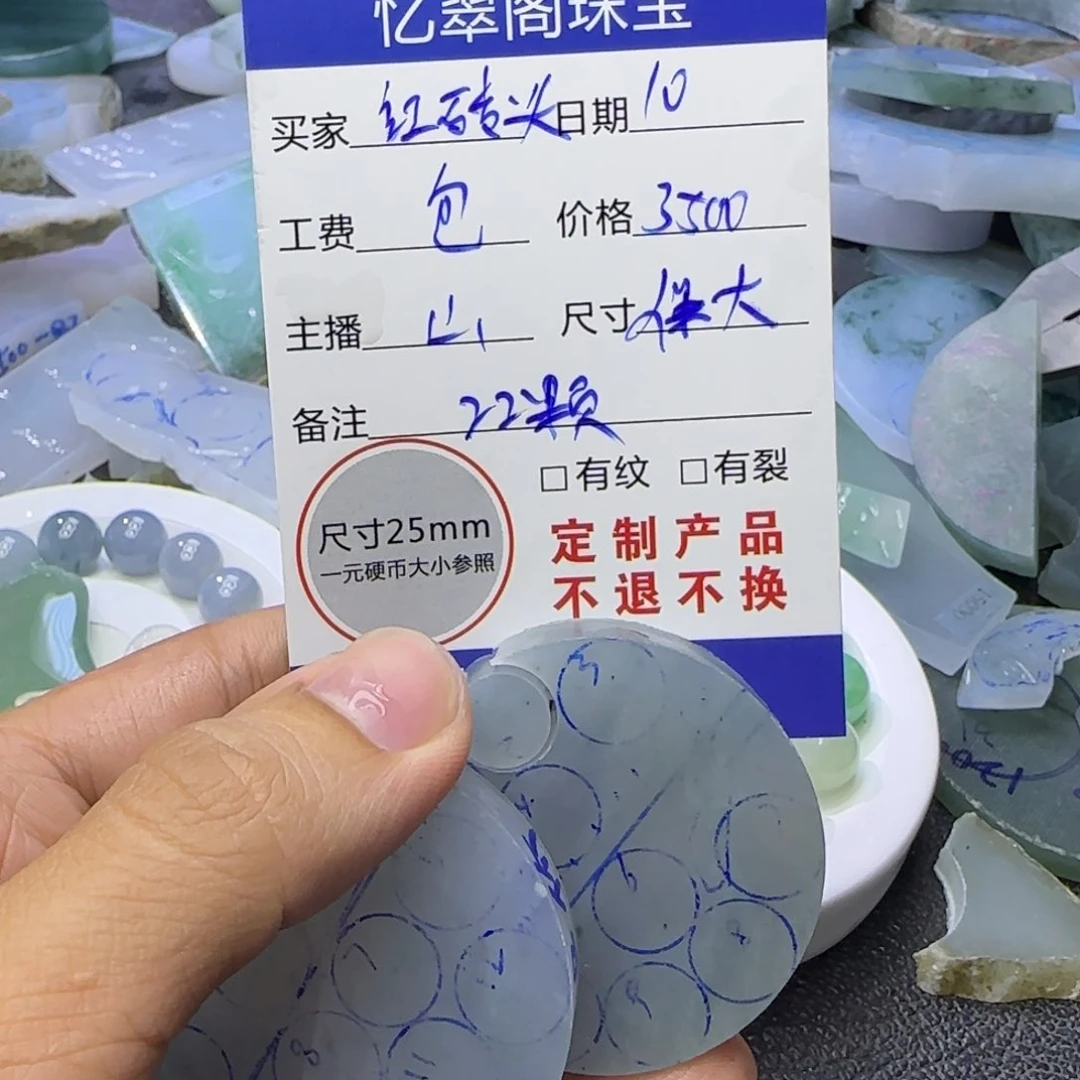 忆翠阁珠宝
买家 红砖头 日期 10
工费 包 价格 3500
主播 山 尺寸 保大
备注 22颗
□有纹 □有裂
尺寸25mm
一元硬币大小参照
定制产品
不退不换